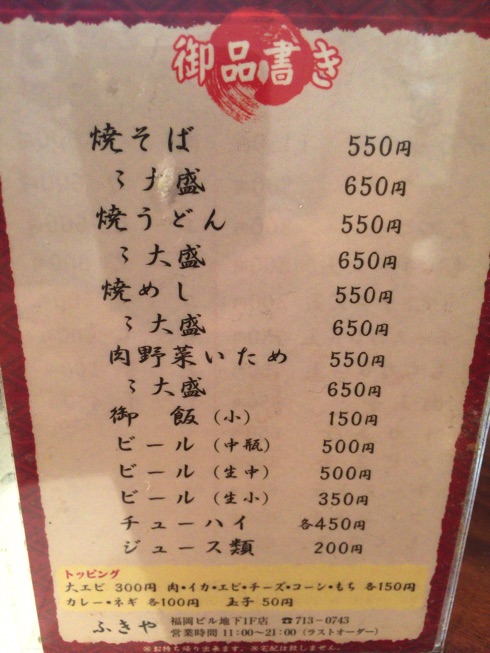 御品書き
焼そば 550円
〻大盛 650円
焼うどん 550円
〻大盛 650円
焼めし 550円
〻大盛 650円
肉野菜いため 550円
〻大盛 650円
御 飯(小) 150円
ビール(中瓶) 500円
ビール(生中) 500円
ビール(生小) 350円
チューハイ 各450円
ジュース類 200円
トッピング
大エビ 300円 肉・イカ・エビ・チーズ・コーン・もち 各150円
カレー・ネギ 各100円 玉子 50円
ふきや 福岡ビル地下1F店 ☎713-0743
営業時間 11:00〜21:00(ラストオーダー)
※お持ち帰り出来ます。※宅配は致しません。